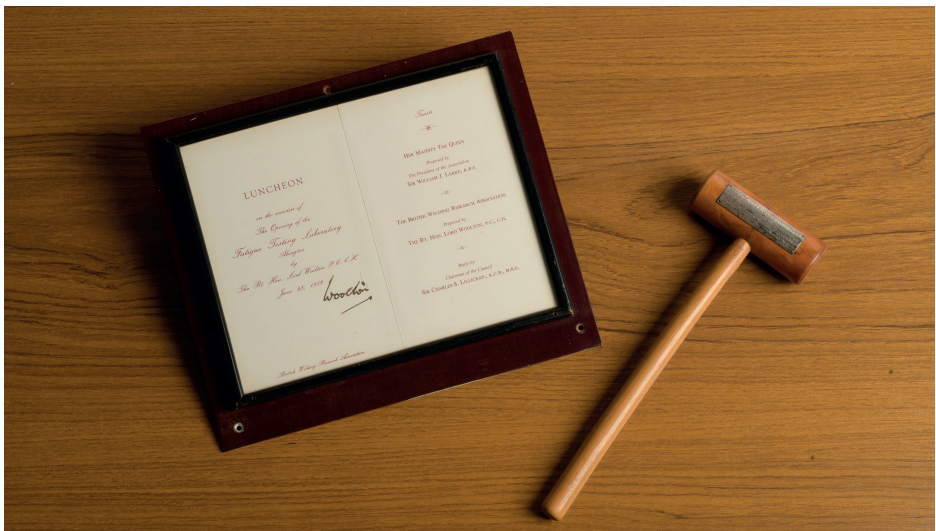 LUNCHEON
on the occasion of
The Opening of the
Fatigue Testing Laboratory
Abington
by
The Rt. Hon. Lord Woolton P.C. C.H.
June 23, 1952
Woolton
British Welding Research Association
Toasts
HER MAJESTY THE QUEEN
Proposed by
The President of the Association
SIR WILLIAM J. LARKE, K.B.E.
THE BRITISH WELDING RESEARCH ASSOCIATION
Proposed by
THE RT. HON. LORD WOOLTON, P.C., C.H.
Reply by
Chairman of the Council
SIR CHARLES S. LILLICRAP, K.C.B., M.B.E.